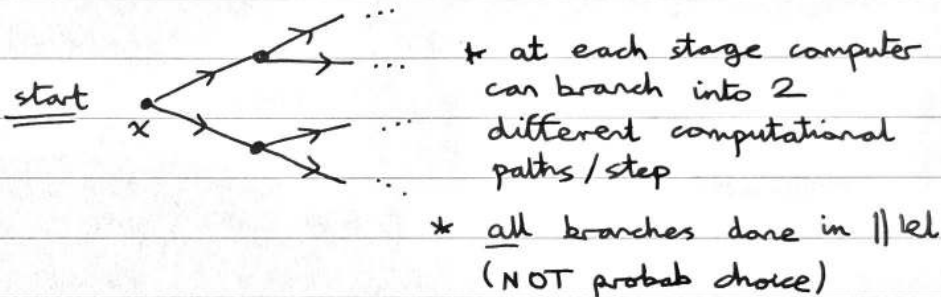 ...
...
start
x
...
...
* at each stage computer
can branch into 2
different computational
paths/step
* all branches done in ||lel
(NOT probab choice)